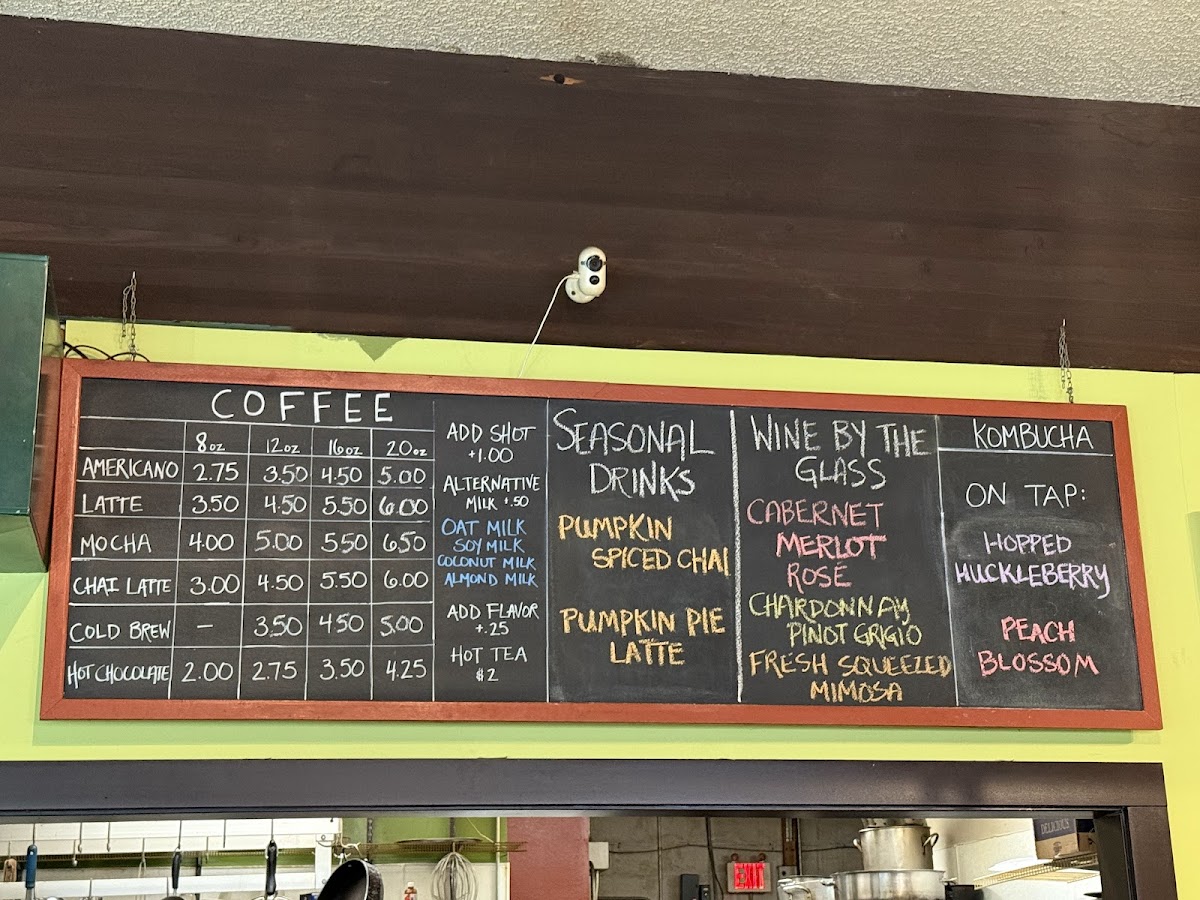 COFFEE
8oz 12oz 16oz 20oz
AMERICANO 2.75 3.50 4.50 5.00
LATTE 3.50 4.50 5.50 6.00
MOCHA 4.00 5.00 5.50 6.50
CHAI LATTE 3.00 4.50 5.50 6.00
COLD BREW – 3.50 4.50 5.00
HOT CHOCOLATE 2.00 2.75 3.50 4.25
ADD SHOT
+1.00
ALTERNATIVE
MILK +.50
OAT MILK
SOY MILK
COCONUT MILK
ALMOND MILK
ADD FLAVOR
+.25
HOT TEA
$2
SEASONAL
DRINKS
PUMPKIN
SPICED CHAI
PUMPKIN PIE
LATTE
WINE BY THE
GLASS
CABERNET
MERLOT
ROSÉ
CHARDONNAY
PINOT GRIGIO
FRESH SQUEEZED
MIMOSA
KOMBUCHA
ON TAP:
HOPPED
HUCKLEBERRY
PEACH
BLOSSOM
EXIT